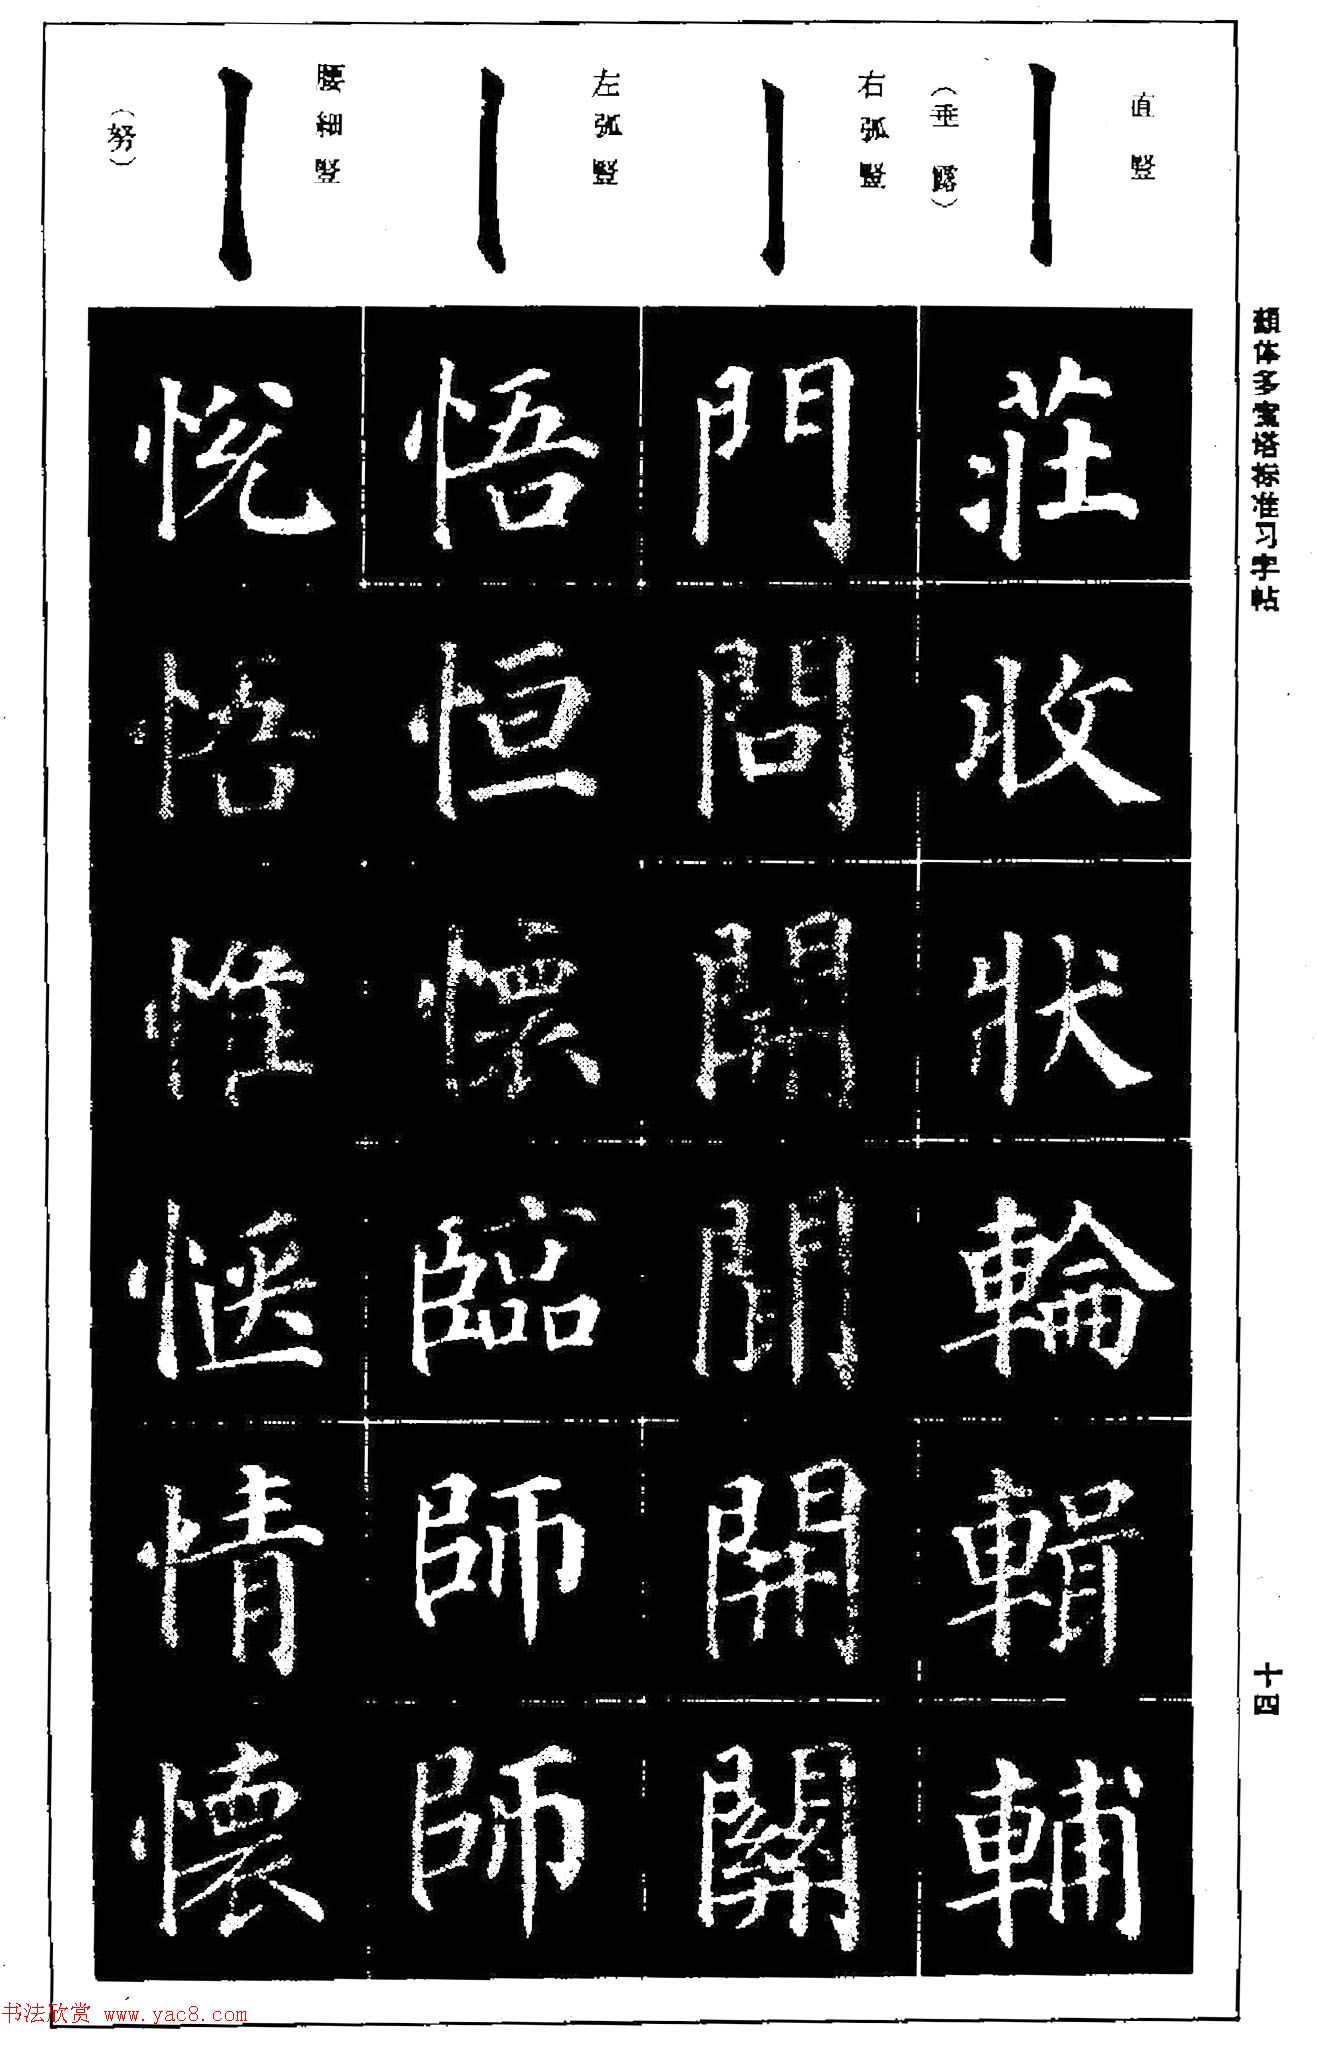 顏体多宝塔标准习字帖
十四
直竪
(垂露)
莊收狀輪輯輔
右弧竪
門問開關
左弧竪
悟恒懷臨師師
腰細竪
(努)
悅悟惟愜情懷
书法欣赏 www.yac8.com